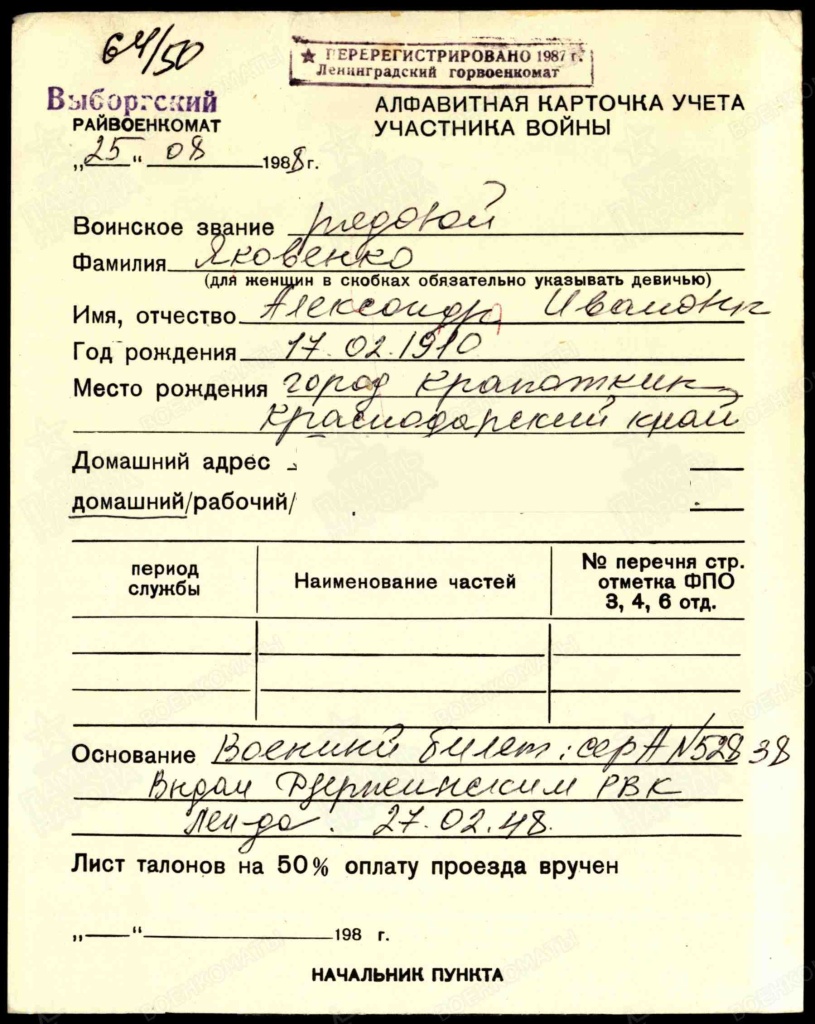 64/50
★ ПЕРЕРЕГИСТРИРОВАНО 1987 г.
Ленинградский горвоенкомат
Выборгский
РАЙВОЕНКОМАТ
„25“ 08 1988 г.
АЛФАВИТНАЯ КАРТОЧКА УЧЕТА
УЧАСТНИКА ВОЙНЫ
Воинское звание рядовой
Фамилия Яковенко
(для женщин в скобках обязательно указывать девичью)
Имя, отчество Александр Иванович
Год рождения 17.02.1910
Место рождения город Крапоткин
Краснодарский край
Домашний адрес
домашний/рабочий/
период службы
Наименование частей
№ перечня стр. отметка ФПО 3, 4, 6 отд.
Основание Военный билет: сер А N52838
Выдан Дзержинским РВК
Лен-да. 27.02.48.
Лист талонов на 50% оплату проезда вручен
„ “ 198 г.
НАЧАЛЬНИК ПУНКТА